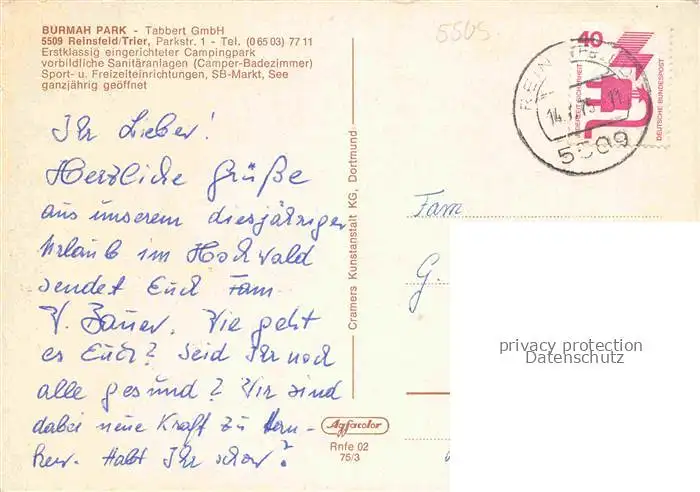 BURMAH PARK - Tabbert GmbH
5509 Reinsfeld/Trier, Parkstr. 1 - Tel. (0 65 03) 77 11
Erstklassig eingerichteter Campingpark
vorbildliche Sanitäranlagen (Camper-Badezimmer)
Sport- u. Freizeiteinrichtungen, SB-Markt, See
ganzjährig geöffnet
5505
40
DEUTSCHE BUNDESPOST
5509
Ihr Lieben!
Herzliche Grüße
aus unserem diesjährigen
Urlaub im Hochwald
sendet Euch Fam
W. Bauer. Wie geht
es Euch? Seid Ihr noch
alle gesund? Wir sind
dabei neue Kraft zu tan-
ken. Habt Ihr schon?
Cramers Kunstanstalt KG, Dortmund
Agfacolor
Rnfe 02
75/3
Fam
G.
privacy protection
Datenschutz